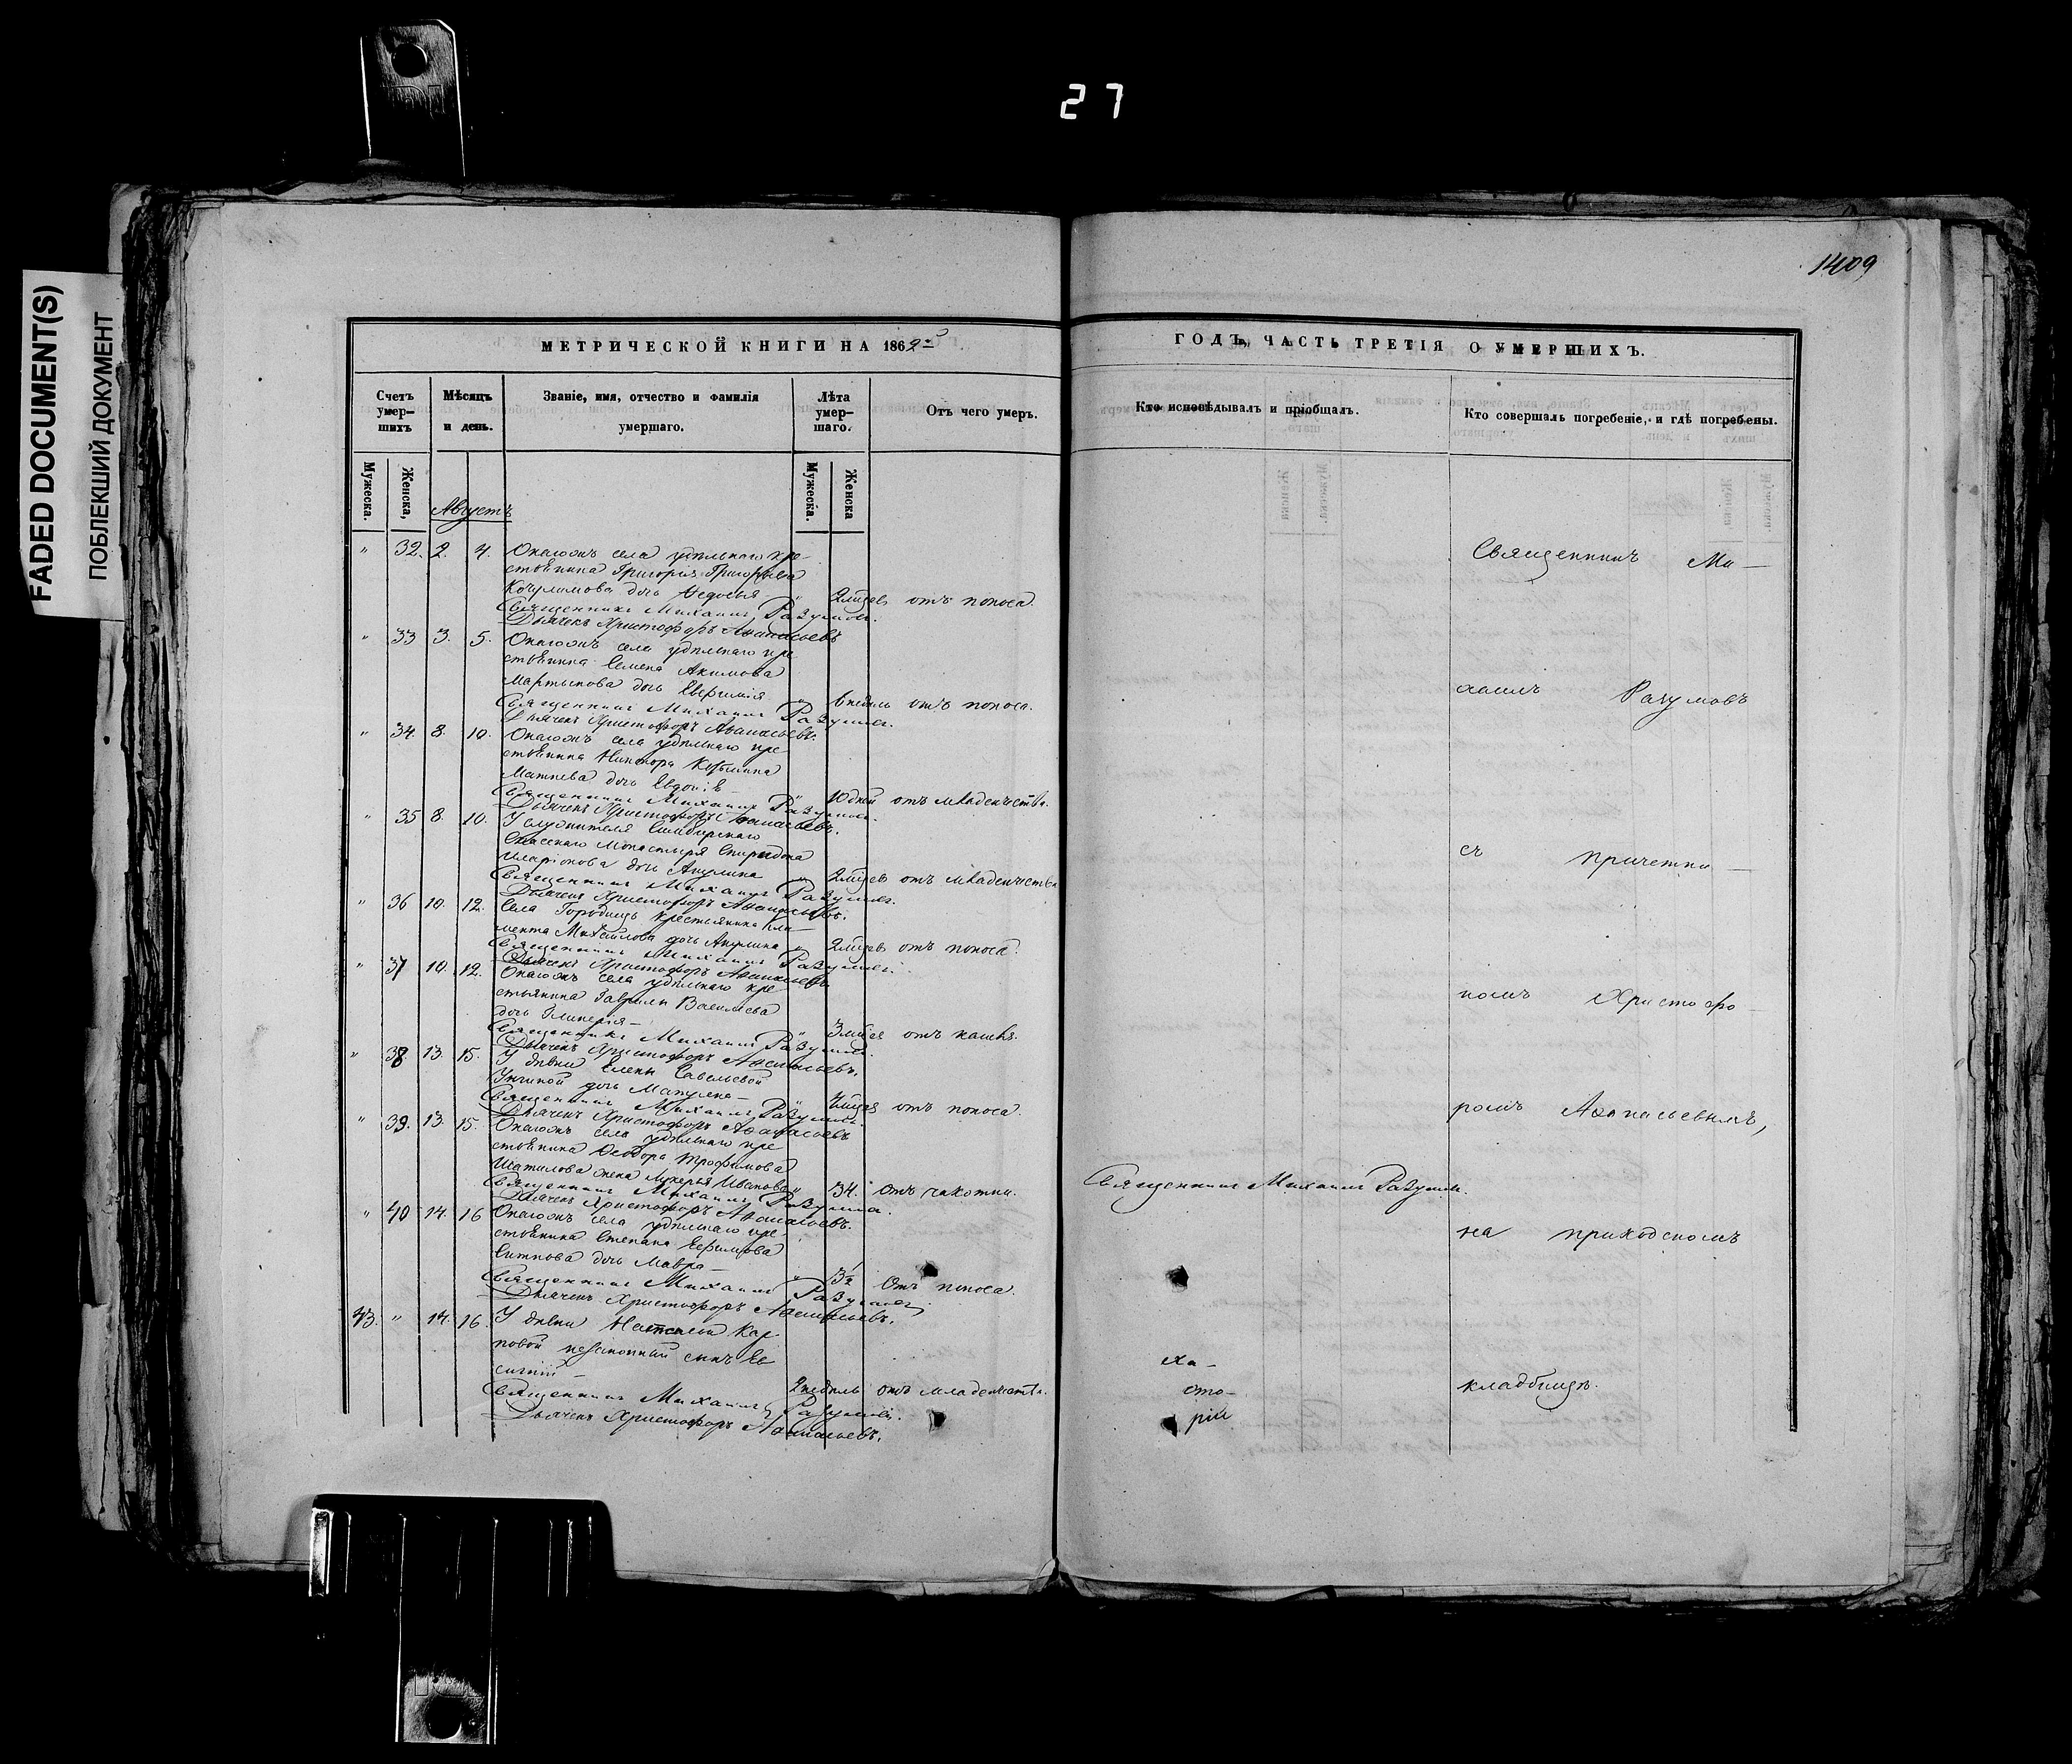 27
FADED DOCUMENT(S)
ПОБЛЕКШИЙ ДОКУМЕНТ
1409
МЕТРИЧЕСКОЙ КНИГИ НА 1862
ГОДЪ, ЧАСТЬ ТРЕТІЯ О УМЕРШИХЪ.
Счетъ умер-шихъ
Мѣсяцъ и день.
Званіе, имя, отчество и фамилія умершаго.
Лѣта умер-шаго.
Отъ чего умеръ.
Кто исповѣдывалъ и пріобщалъ.
Кто совершалъ погребеніе, и гдѣ погребены.
Мужеска.
Женска,
Мужеска.
Женска
Августъ
" 32. 2. 4. села удѣльнаго кре-
стьянина Григорія Григорьева
дочь Ѳедосья " 2 мѣсяц. отъ поноса.
Священникъ Михаилъ Разумовъ.
Дьячекъ Христофоръ Аѳанасьевъ
" 33 3. 5. села удѣльнаго кре
стьянина Семена Акимова
Мартынова дочь Евфимія " 6 недѣль отъ поноса.
Священникъ Михаилъ Разумовъ.
Дьячекъ Христофоръ Аѳанасьевъ.
" 34. 8. 10. села удѣльнаго кре
стьянина Никифора
дочь Евдокія " 10 дней отъ младенчества.
Священникъ Михаилъ Разумовъ.
Дьячекъ Христофоръ Аѳанасьевъ.
" 35 8. 10. У служителя Симбирскаго
Спасскаго Монастыря Спиридона
Иларіонова дочь Акулина " 2 мѣсяц. отъ младенчества
Священникъ Михаилъ Разумовъ.
Дьячекъ Христофоръ Аѳанасьевъ.
" 36 10. 12. Села Городищъ крестьянина Кли-
мента Михайлова дочь Акулина " 2 мѣсяц. отъ поноса.
Священникъ Михаилъ Разумовъ.
Дьячекъ Христофоръ Аѳанасьевъ
" 37 10. 12. села удѣльнаго кре
стьянина Гаврилы Васильева
дочь Гликерія " 3 мѣсяц. отъ кашля.
Священникъ Михаилъ Разумовъ.
Дьячекъ Христофоръ Аѳанасьевъ.
" 38 13. 15. У дѣвки Елены Савельевой
дочь " отъ поноса.
Священникъ Михаилъ Разумовъ.
Дьячекъ Христофоръ Аѳанасьевъ
" 39. 13. 15. села удѣльнаго кре
стьянина Ѳеодора Трофимова
Шатилова жена Лукерья Иванова " 34. отъ чахотки.
Священникъ Михаилъ Разумовъ.
Дьячекъ Христофоръ Аѳанасьевъ.
" 40 14. 16 села удѣльнаго кре-
стьянина Степана Ефимова
Ситнова дочь Мавра " Отъ поноса.
Священникъ Михаилъ Разумовъ.
Дьячекъ Христофоръ Аѳанасьевъ.
43. " 14. 16. У дѣвки Натальи Кар
повой незаконный сынъ Ев
сигній 2 недѣль отъ младенчества.
Священникъ Михаилъ Разумовъ.
Дьячекъ Христофоръ Аѳанасьевъ.
Священникъ Михаилъ Разумовъ.
рій
Священникъ Ми-
хаилъ Разумовъ
съ причетни-
комъ Христофо-
ромъ Аѳанасьевымъ,
на приходскомъ
кладбищѣ.